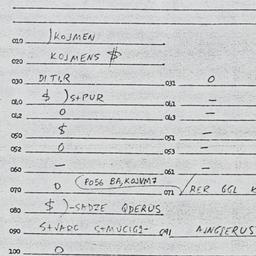 010 )KOJMEN
020 KOJMENS $
030 DITIR 031 O
040 $ )S+PUR 041 —
042 O 043 —
050 $ 051 —
052 O 053 —
060 — 061 —
070 O (POSG BA,KOJVM7 071 /RER GGL K
080 $ )-SADZE QDERUS
090 091 AJNGIERUS
100 O